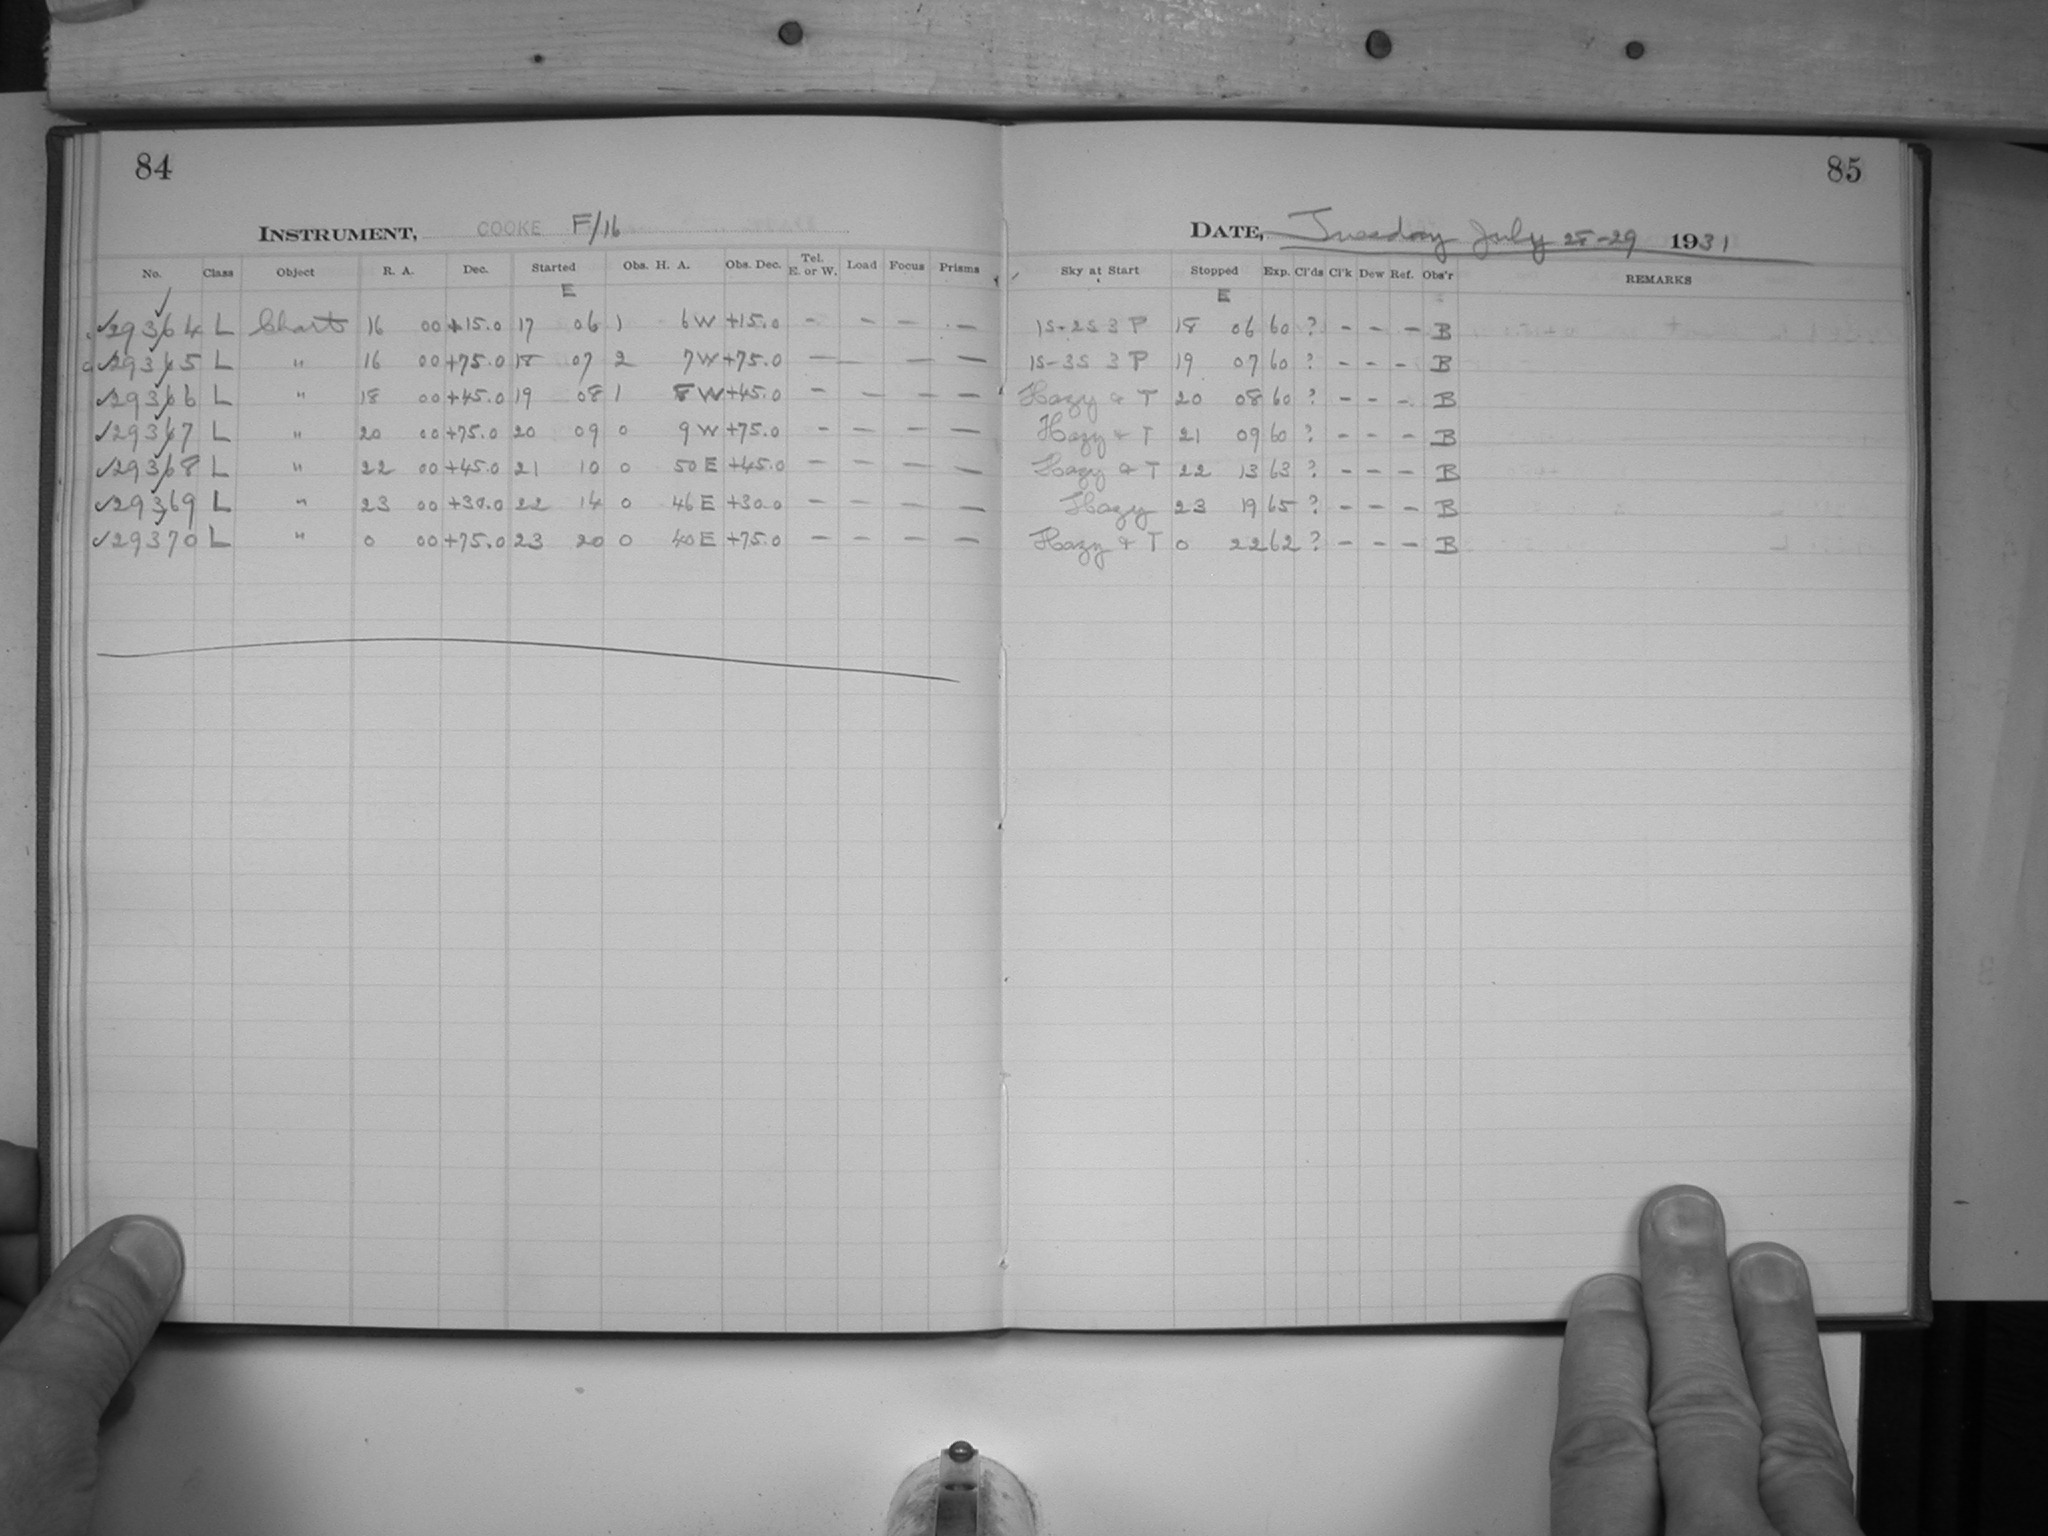 84
INSTRUMENT, COOKE F/16
No. Class Object R. A. Dec. Started Obs. H. A. Obs. Dec. Tel. E. or W. Load Focus Prisms
E
✓29364 L Chart 16 00 +15.0 17 06 1 6 W +15.0 - - - -
✓29365 L " 16 00 +75.0 18 07 2 7 W +75.0 - - - -
✓29366 L " 18 00 +45.0 19 08 1 8 W +45.0 - - - -
✓29367 L " 20 00 +75.0 20 09 0 9 W +75.0 - - - -
✓29368 L " 22 00 +45.0 21 10 0 50 E +45.0 - - - -
✓29369 L " 23 00 +30.0 22 14 0 46 E +30.0 - - - -
✓29370 L " 0 00 +75.0 23 20 0 40 E +75.0 - - - -
85
DATE, Tuesday July 28-29 1931
Sky at Start Stopped Exp. Cl'ds Cl'k Dew Ref. Obs'r REMARKS
E
1S-2S 3 P 18 06 60 ? - - - B
1S-3S 3 P 19 07 60 ? - - - B
Hazy & T 20 08 60 ? - - - B
Hazy & T 21 09 60 ? - - - B
Hazy & T 22 13 63 ? - - - B
Hazy 23 19 65 ? - - - B
Hazy & T 0 22 62 ? - - - B